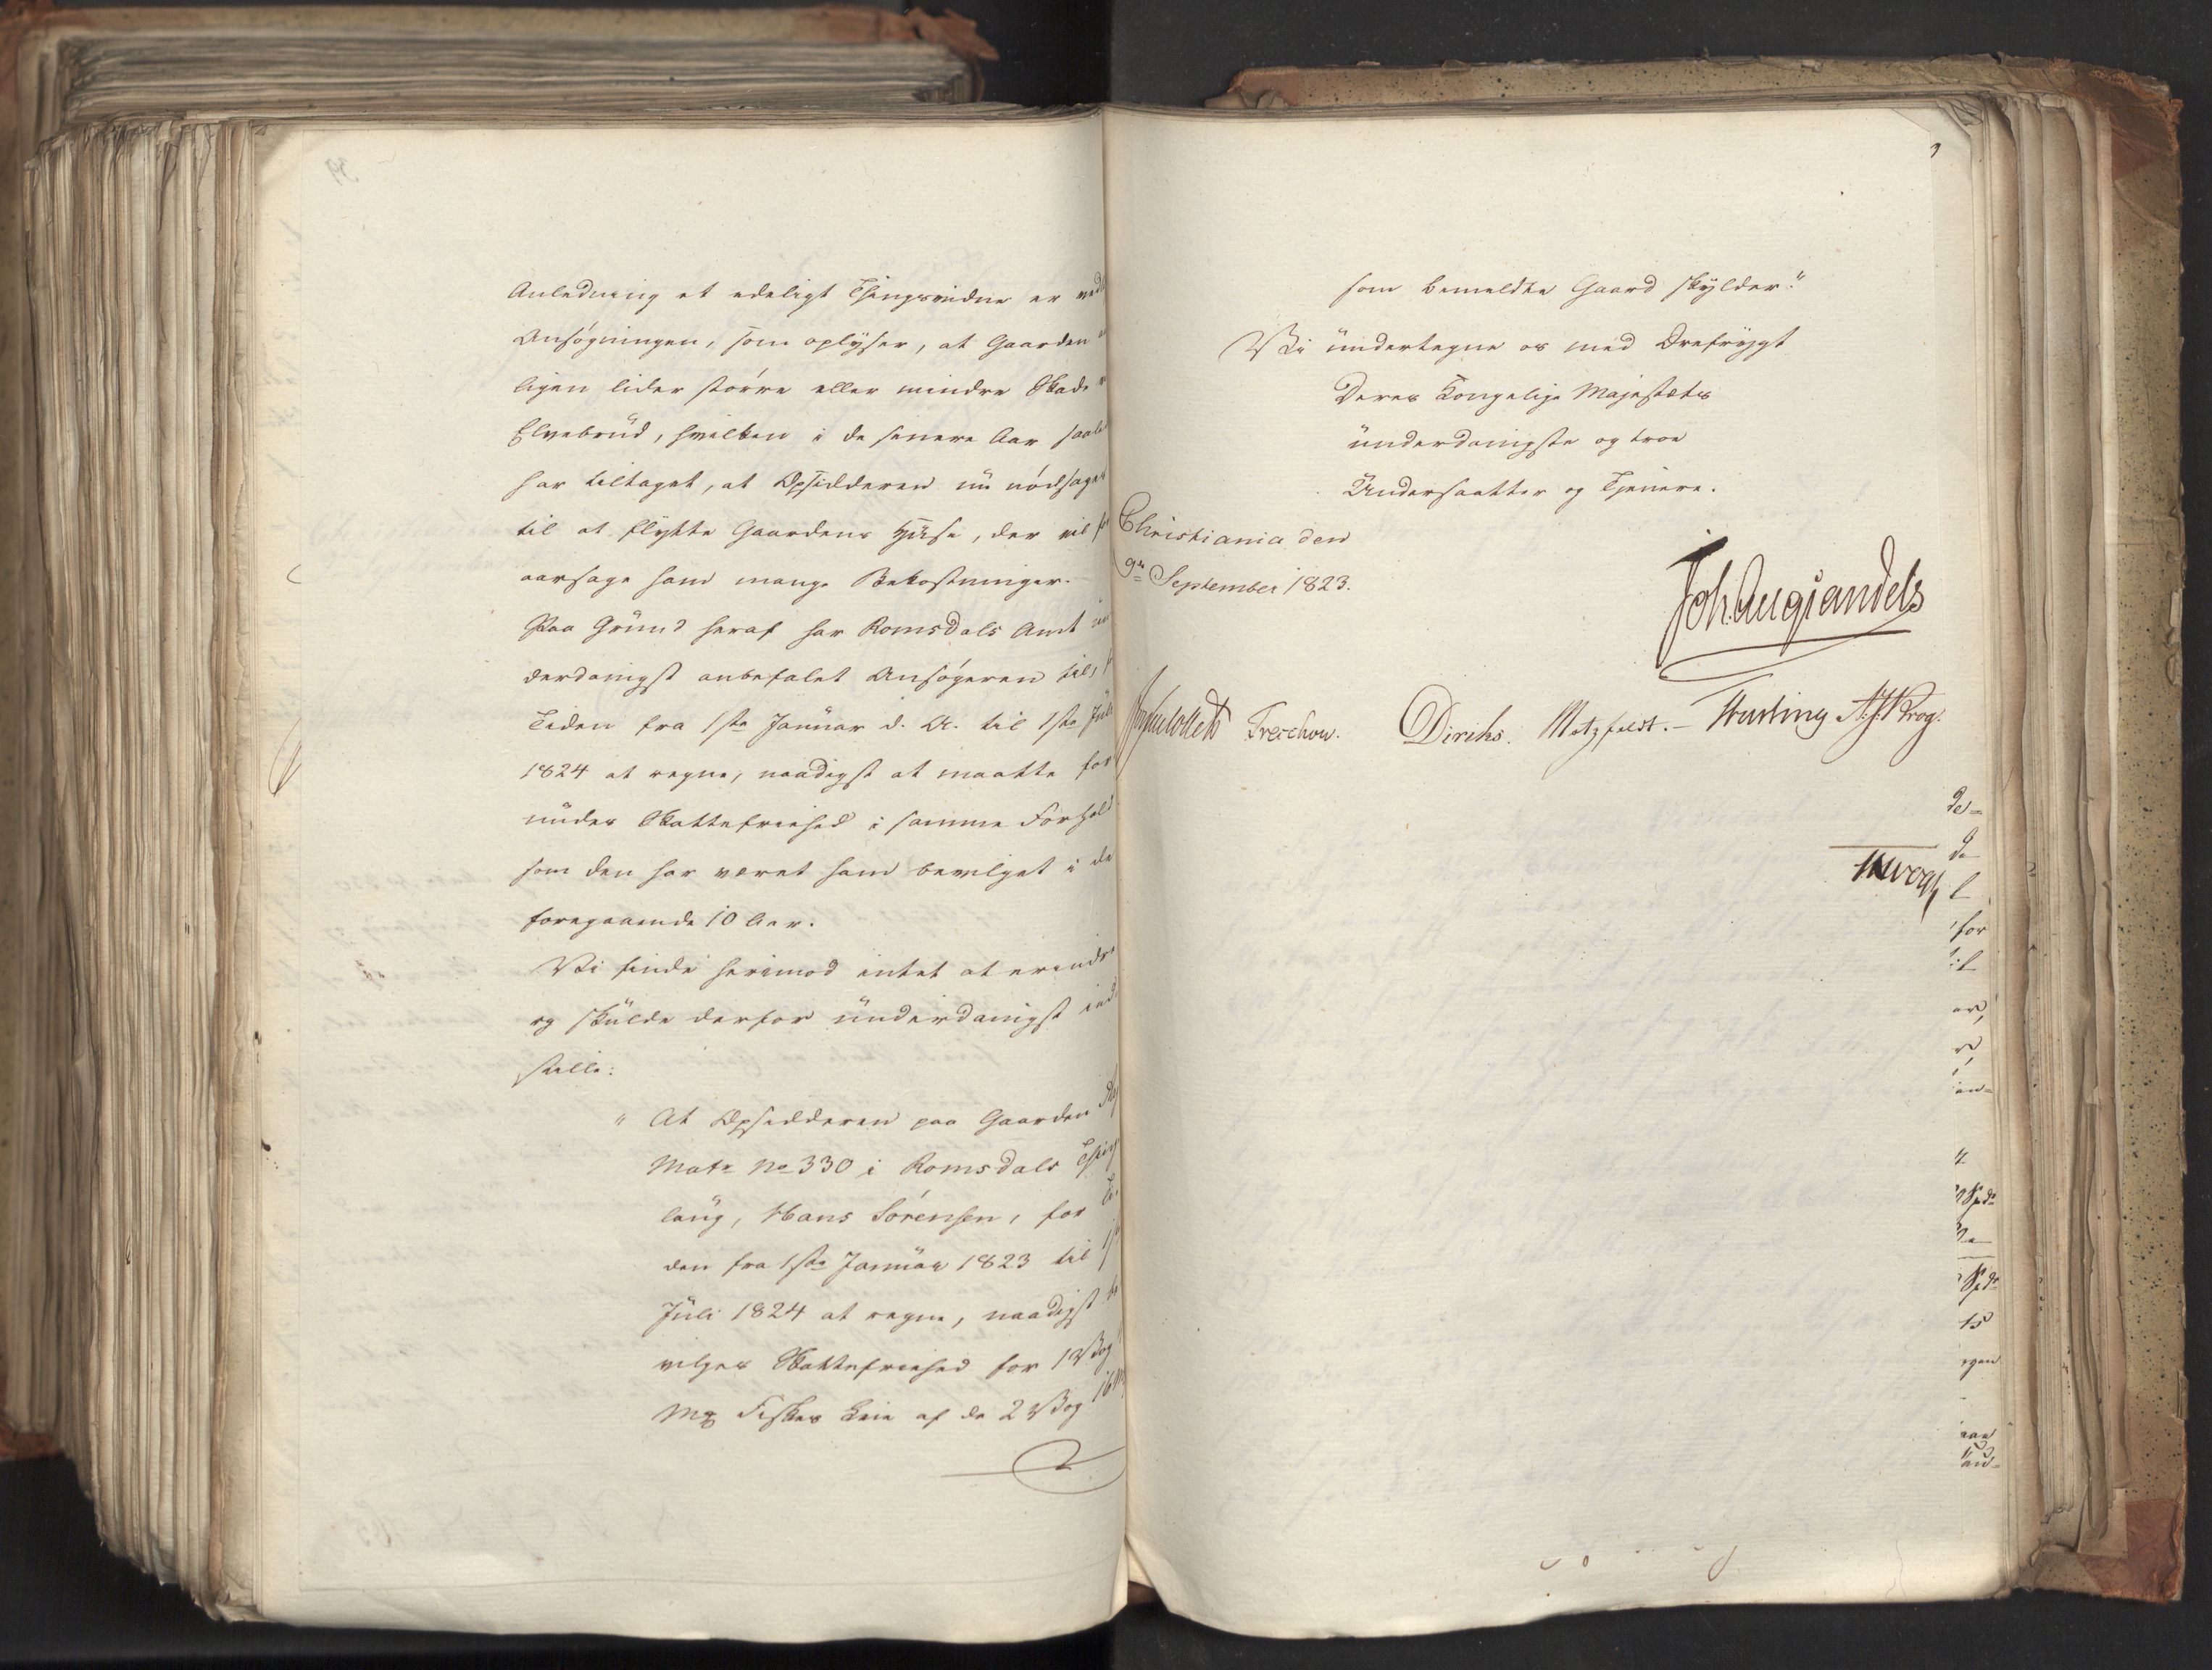 Anledning et edeligt Thingsvidne er ved
Ansøgningen, som oplyser, at Gaarden
ligen lider større eller mindre Skade
Elvebrud, hvilken i de senere Aar saale
har tiltaget, at Opsidderen nu nødsages
til at flytte Gaardens Huse, der vil for
aarsage ham mange Bekostninger.
Paa Grund heraf har Romsdals Amt un
derdanigst anbefalet Ansøgeren til, f
Tiden fra 1ste Januar d. A. til 1ste Juli
1824 at regne, naadigst at maatte for
undes Skattefriehed i samme Forhold
som den har været ham bevilget i de
foregaaende 10 Aar.
Vi finde herimod intet at erindre
og skulde derfor underdanigst ind
stille:
" At Opsidderen paa Gaarden
Matr No 330 i Romsdals Thing
laug, Hans Sørensen, for Ti
den fra 1ste Januar 1823 til 1ste
Juli 1824 at regne, naadigst be
vilges Skattefriehed for 1 Vog
Mk Fiskes Leie af de 2 Vog 16 Mk
som bemeldte Gaard skylder."
Vi undertegne os med Ærefrygt
Deres Kongelige Majestæts
underdanigste og troe
Undersaatter og Tjenere.
Christiania den
9de September 1823.
Joh. Aug. Sandels
Treschow. Diriks. Motzfeldt. - Fasting A. J. Krog.